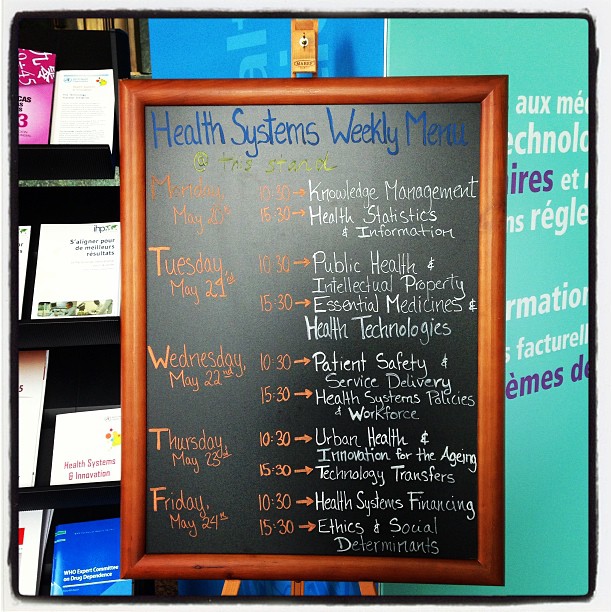 Health Systems Weekly Menu
@ this stand
Monday,
May 20th
10:30 → Knowledge Management
15:30 → Health Statistics
& Information
Tuesday,
May 21st
10:30 → Public Health &
Intellectual Property
15:30 → Essential Medicines &
Health Technologies
Wednesday,
May 22nd,
10:30 → Patient Safety &
Service Delivery
15:30 → Health Systems Policies
& Workforce
Thursday,
May 23rd
10:30 → Urban Health &
Innovation for the Ageing
15:30 → Technology Transfers
Friday,
May 24th
10:30 → Health Systems Financing
15:30 → Ethics & Social
Determinants
ihp+
S'aligner pour
de meilleurs
résultats
Health Systems
& Innovation
WHO Expert Committee
on Drug Dependence
aux mé
echnolo
ires et
ns régle
rmation
s facturel
èmes de